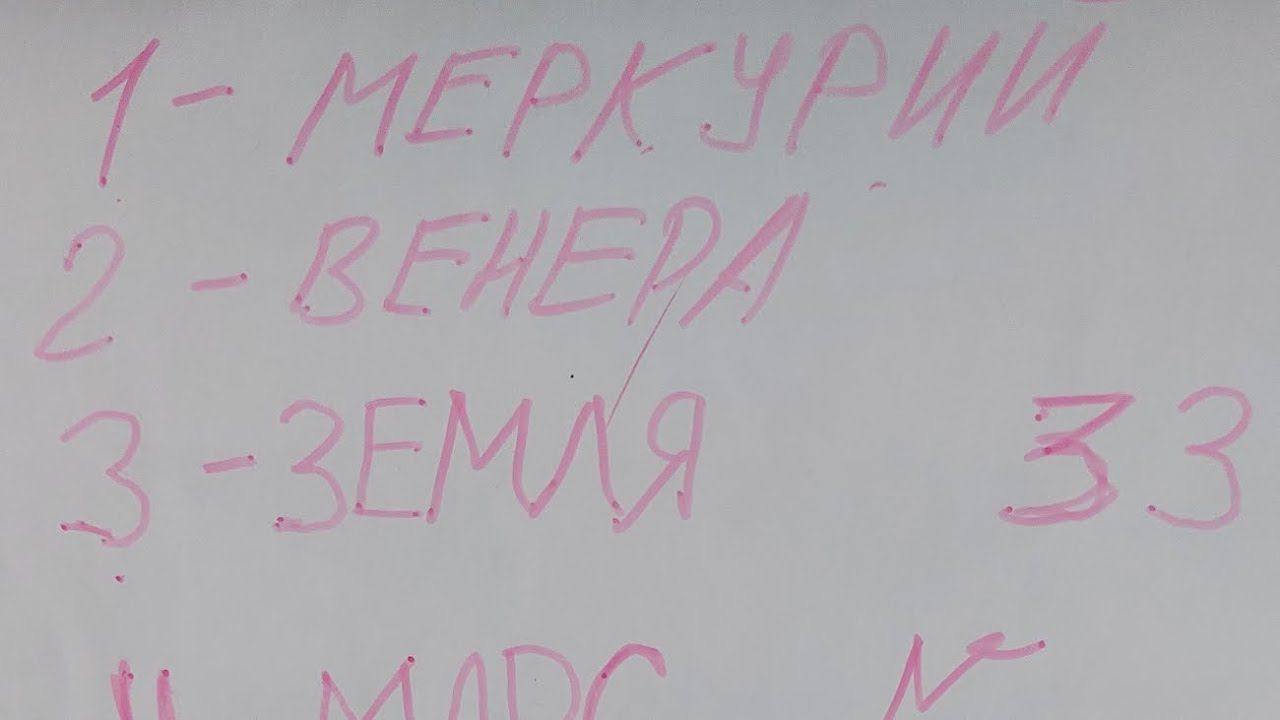 1 - МЕРКУРИЙ
2 - ВЕНЕРА
3 - ЗЕМЛЯ 3 3
4 МАРС